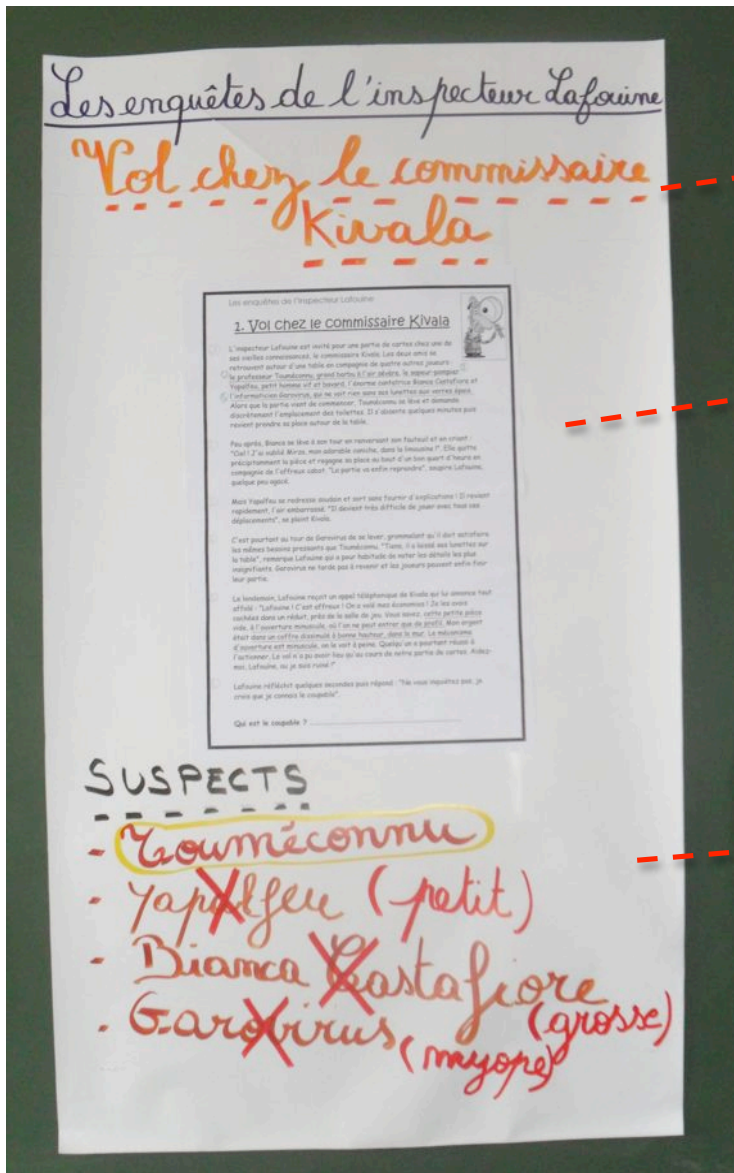 Les enquêtes de l'inspecteur Lafouine
Vol chez le commissaire
Kivala
Les enquêtes de l'inspecteur Lafouine
1. Vol chez le commissaire Kivala
L'inspecteur Lafouine est invité pour une partie de cartes chez une de
ses vieilles connaissances, le commissaire Kivala. Les deux amis se
retrouvent autour d'une table en compagnie de quatre autres joueurs :
le professeur Touméconnu, grand barbu à l'air sévère, le sapeur-pompier
Yapalfeu, petit homme vif et bavard, l'énorme cantatrice Bianca Castafiore et
l'informaticien Garovirus, qui ne voit rien sans ses lunettes aux verres épais.
Alors que la partie vient de commencer, Touméconnu se lève et demande
discrètement l'emplacement des toilettes. Il s'absente quelques minutes puis
revient prendre sa place autour de la table.
Peu après, Bianca se lève à son tour en renversant son fauteuil et en criant :
"Ciel ! J'ai oublié Mirza, mon adorable caniche, dans la limousine !". Elle quitte
précipitamment la pièce et regagne sa place au bout d'un bon quart d'heure en
compagnie de l'affreux cabot. "La partie va enfin reprendre", soupire Lafouine,
quelque peu agacé.
Mais Yapalfeu se redresse soudain et sort sans fournir d'explications ! Il revient
rapidement, l'air embarrassé. "Il devient très difficile de jouer avec tous ces
déplacements", se plaint Kivala.
C'est pourtant au tour de Garovirus de se lever, grommelant qu'il doit satisfaire
les mêmes besoins pressants que Touméconnu. "Tiens, il a laissé ses lunettes sur
la table", remarque Lafouine qui a pour habitude de noter les détails les plus
insignifiants. Garovirus ne tarde pas à revenir et les joueurs peuvent enfin finir
leur partie.
Le lendemain, Lafouine reçoit un appel téléphonique de Kivala qui lui annonce tout
affolé : "Lafouine ! C'est affreux ! On a volé mes économies ! Je les avais
cachées dans un réduit, près de la salle de jeu. Vous savez, cette petite pièce
vide, à l'ouverture minuscule, où l'on ne peut entrer que de profil. Mon argent
était dans un coffre dissimulé à bonne hauteur, dans le mur. Le mécanisme
d'ouverture est minuscule, on le voit à peine. Quelqu'un a pourtant réussi à
l'actionner. Le vol n'a pu avoir lieu qu'au cours de notre partie de cartes. Aidez-
moi, Lafouine, ou je suis ruiné !"
Lafouine réfléchit quelques secondes puis répond : "Ne vous inquiétez pas, je
crois que je connais le coupable".
Qui est le coupable ?
SUSPECTS
- Touméconnu
- Yapalfeu (petit)
- Bianca Castafiore
(grosse)
- Garovirus (myope)